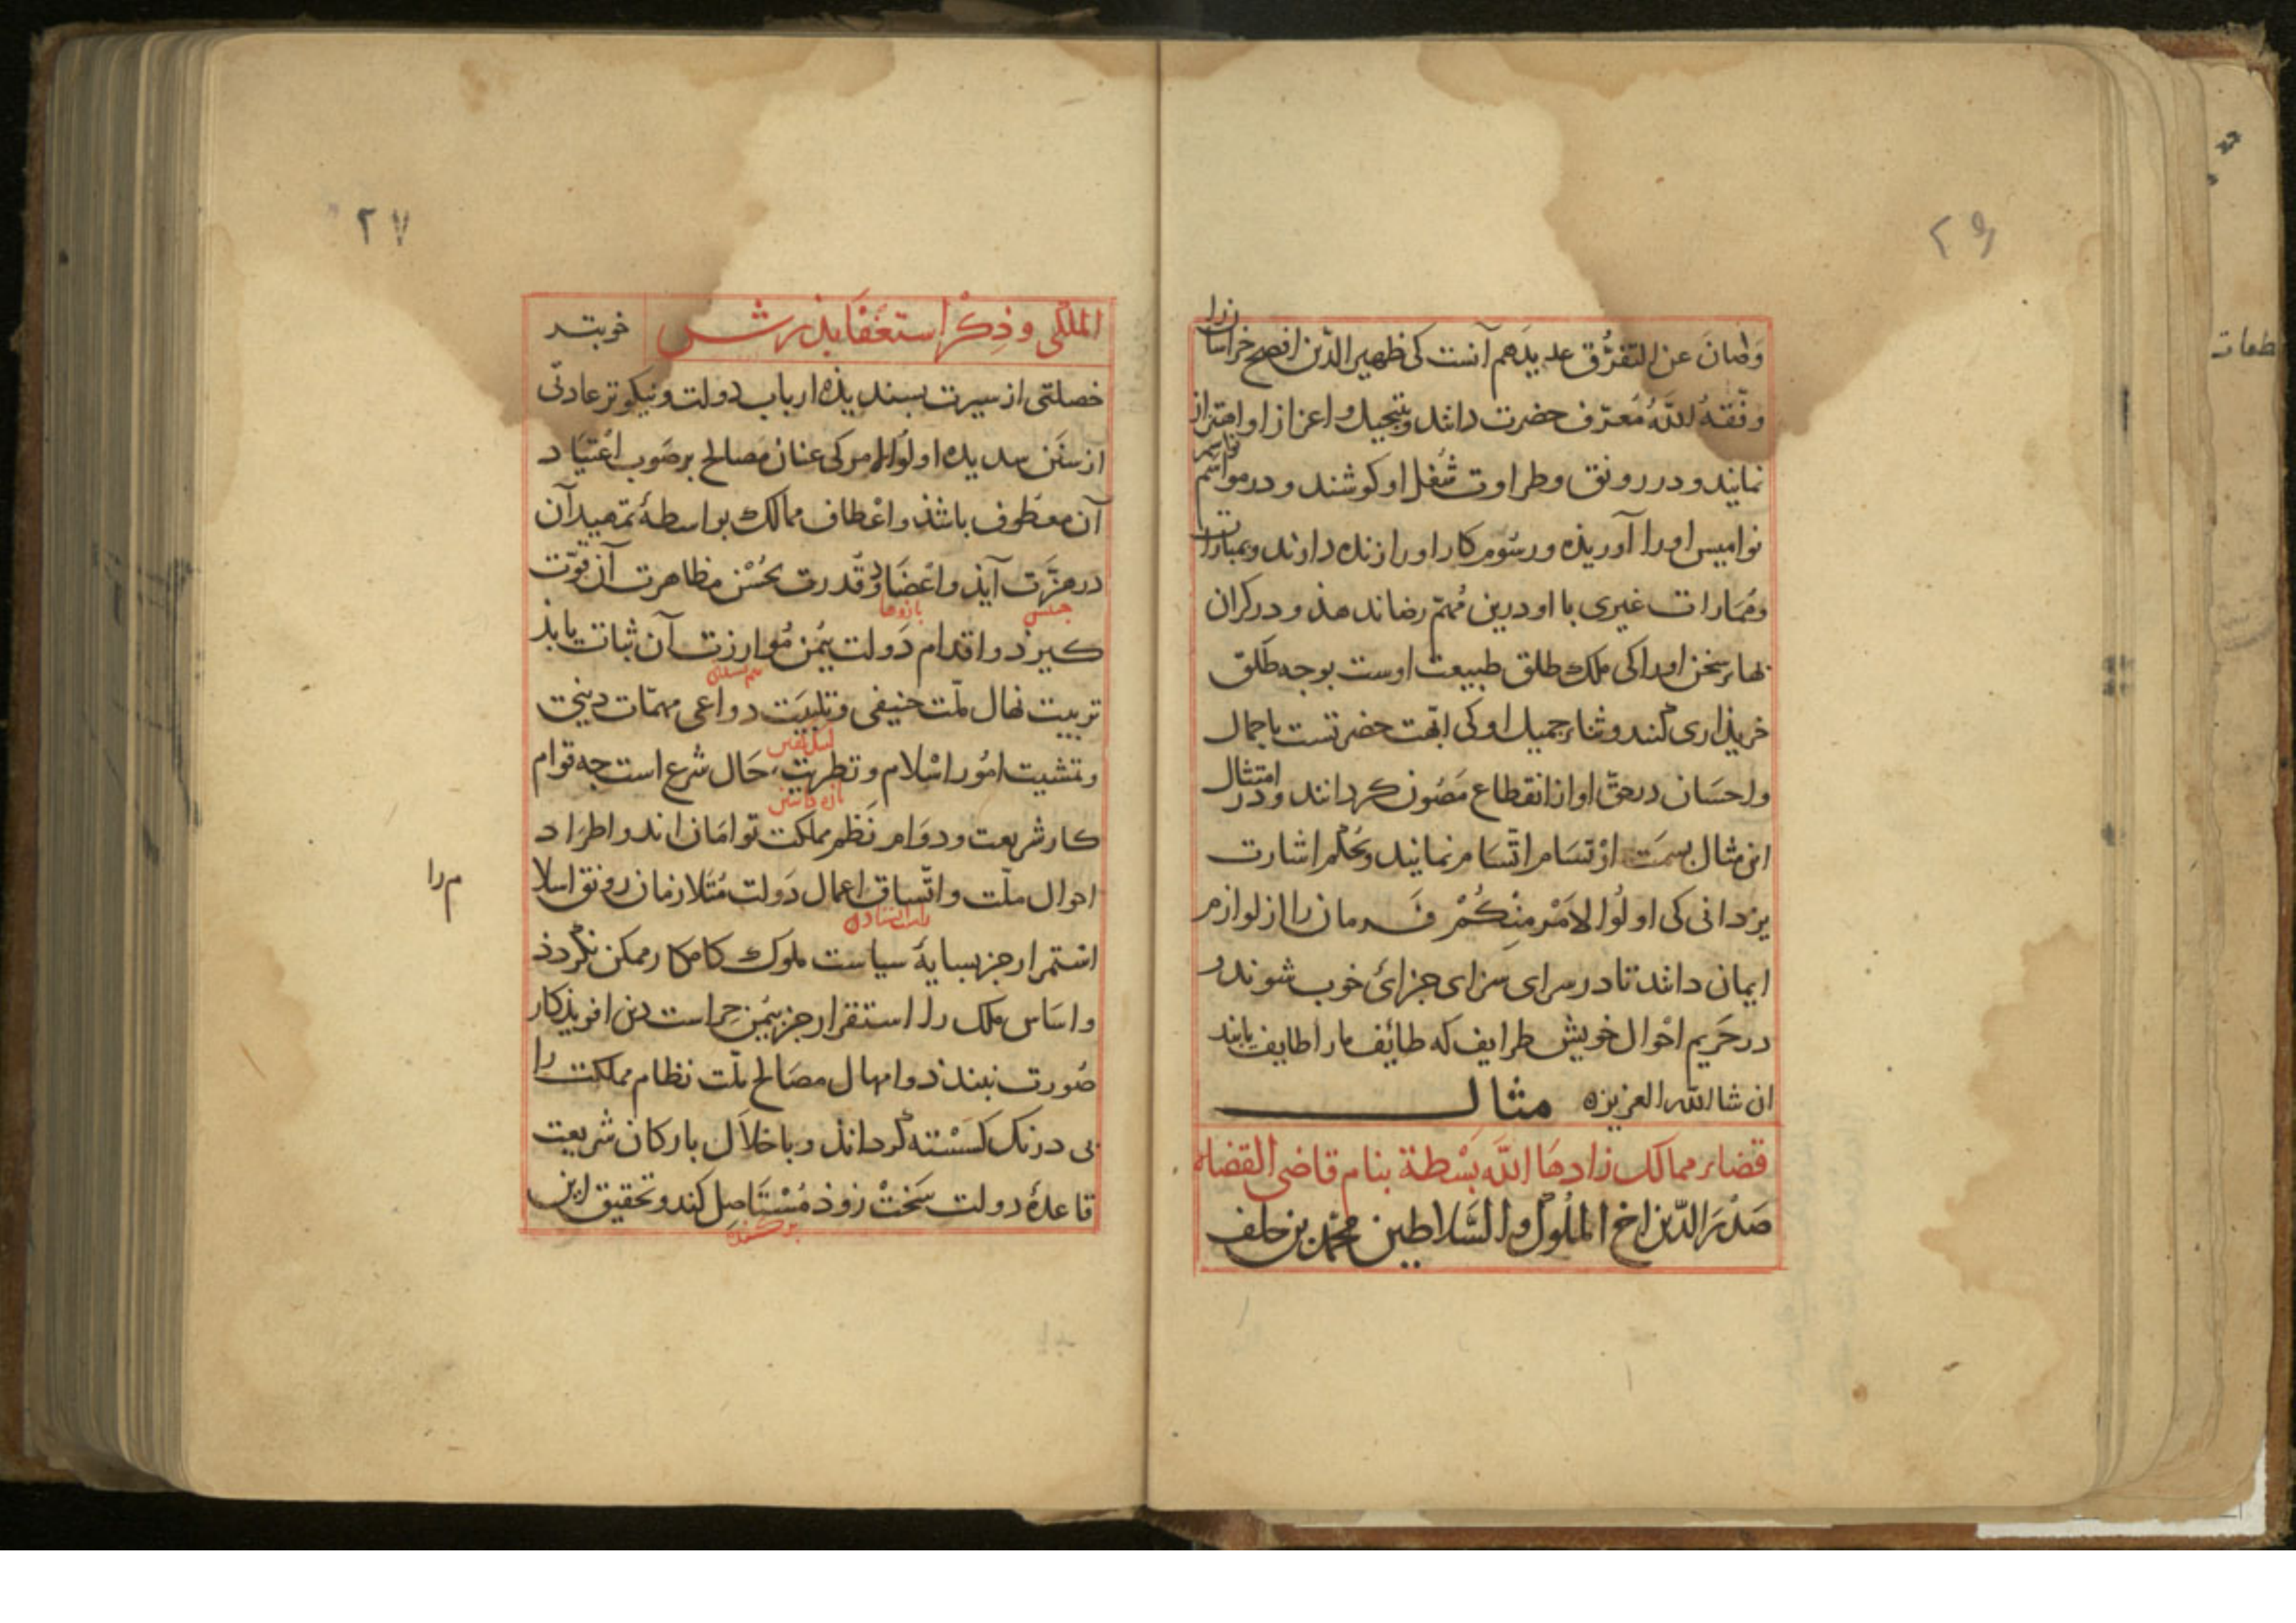 ۲۶
وصان عن التفرق عدیدهم آنست کی ظهیر الدین افصح خراسان را
وفقه الله معرف حضرت دانند و بتبجیل و اعزاز او اهتزاز
نمایند و در رونق و طراوت شغل او کوشند و در مواسم
نوامیس او را آوریذه و رسوم کار او را زنده دارند و بمبارات
و ممارات غیری با او درین مهم رضا ندهند و در کران
بهاء سخن او را کی ملک طلق طبیعت اوست بوجه طلق
خریذاری کنند و ثناء جمیل او کی ابهت حضرتست باجمال
و احسان در حق او از انقطاع مصون کردانند و در امتثال
این مثال بسمت ارتسام اتسام نمایند و بحکم اشارت
یزدانی کی اولوا الامر منکم فرمان را از لوازم
ایمان دانند تا در سرای سزای جزائ خوب شوند و
در حریم احوال خویش طرایف که طائف ما را طایف یابند
ان شا الله العزیز ه مثال
قضاء ممالک زادها الله بسطة بنام قاضی القضاة
صدر الدین اخ الملوک والسلاطین محمد بن خلف
۲۷
الملکی و ذکر استعفا پذرش
خوبتر
خصلتی از سیرت بسندیذه ارباب دولت و نیکوتر عادتی
از سنن سدیده اولوا الامر کی عنان مصالح بر صوب اعتیاد
آن معطوف باشذ و اعطاف ممالک بواسطهٔ تمهید آن
در هزت آیذ و اعضاد قدرت بحسن مظاهرت آن قوت
جنبش
بازوها
کیرذ و اقدام دولت بیمن موازرت آن ثبات یابذ
تربیت نهال ملت حنیفی و تلبیت دواعی مهمات دینی
و تمشیت امور اسلام و تطریت حال شرع است جه قوام
کار شریعت و دوام نظم مملکت توامان اند و اطراد
احوال ملت و اتساق اعمال دولت متلازمان رونق اسلا
م را
استمرار جز بسایهٔ سیاست ملوک کامکار ممکن نکردذ
و اساس ملک را استقرار جز بیمن حراست دین افریذکار
صورت نبندذ و امهال مصالح ملت نظام مملکت را
بی درنک کسسته کرداند و باخلال بارکان شریعت
قاعدهٔ دولت سخت زوذ مستاصل کند و تحقیق این
برکننده